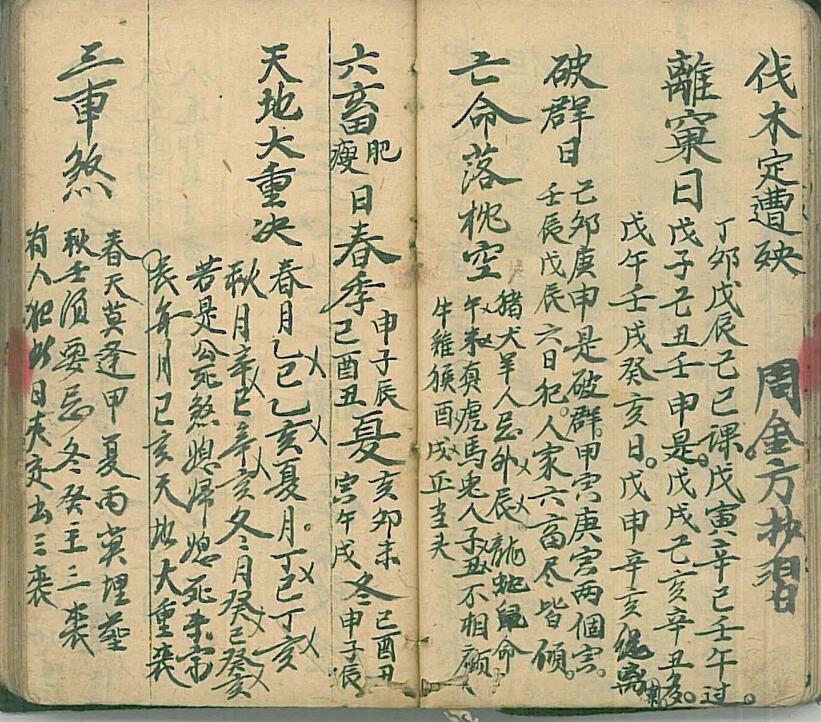 伐木定遭殃 周金方抄習
離窠日
丁卯戊辰己巳課。戊寅辛巳壬午过。
戊子己丑壬申是。戊戌己亥辛丑多。
戊午壬戌癸亥日。戊申辛亥總离窠
破群日
己卯庚申是破群。甲寅庚寅两個寅。
壬辰戊辰六日犯。人家六畜尽皆傾。
亡命落枕空
猪犬羊人忌外辰。龍蛇鼠命
午未寅虎馬兎人子丑不相顧
牛雞猴酉戌正当头
六畜肥瘦日春季申子辰巳酉丑夏亥卯未寅午戌冬巳酉丑申子辰
天地大重决
春月乙巳乙亥夏月。丁巳丁亥
秋月辛巳辛亥冬月癸巳癸亥
若是公死煞媳歸媳死来宗
長年月巳亥天地大重丧
三車煞
春天莫逢甲夏丙莫埋塟
秋壬須要忌冬癸主三丧
有人犯此日夹定出三丧